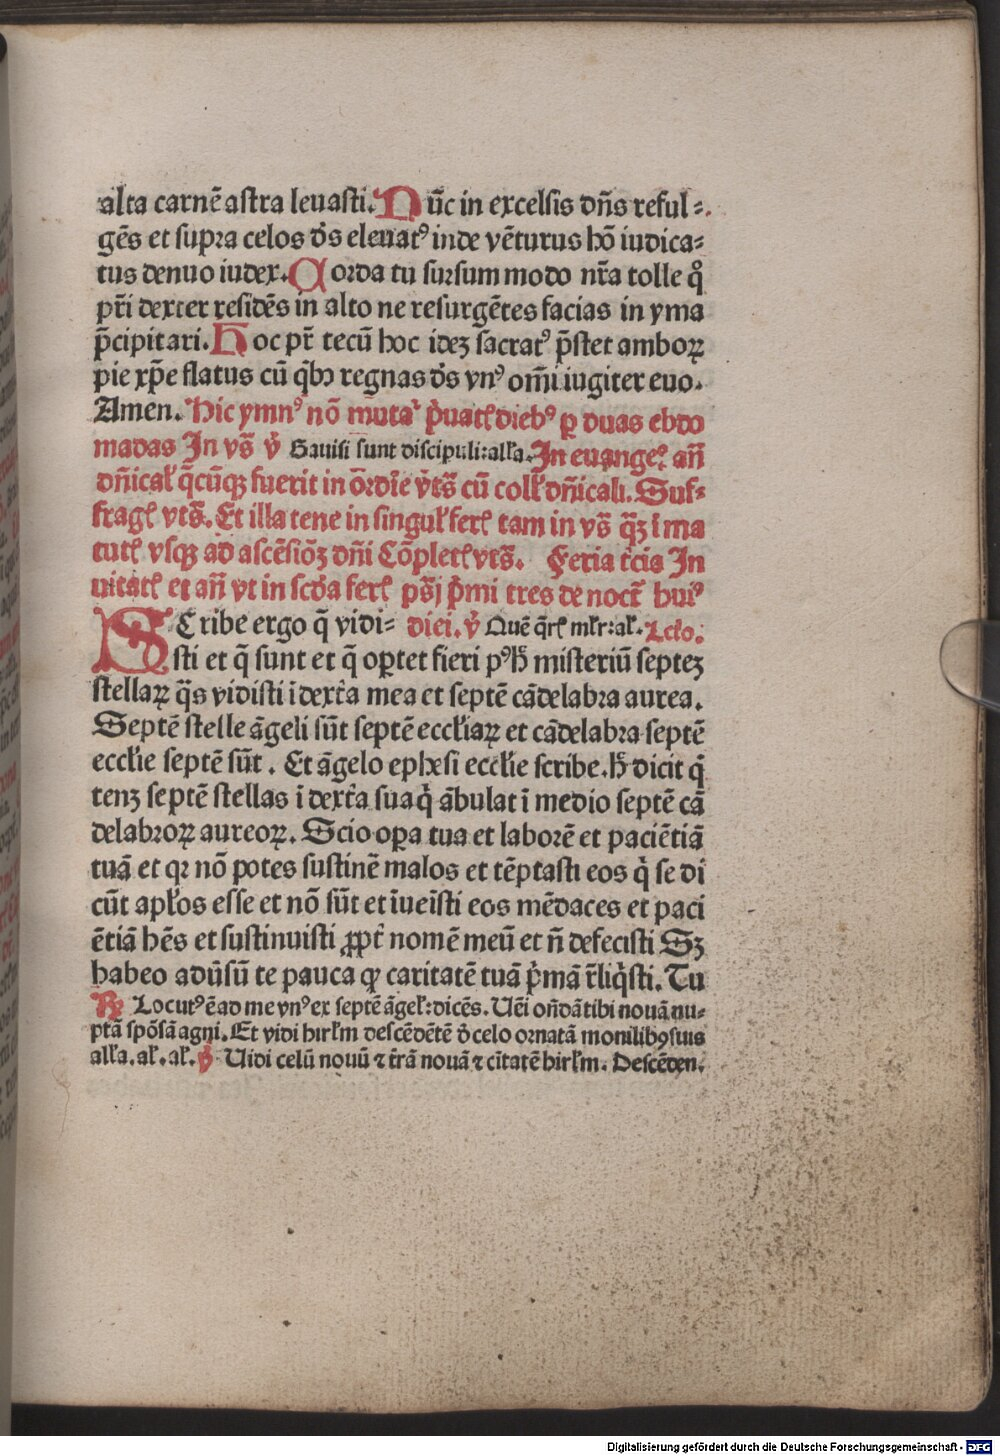 alta carnē astra leuasti. Nūc in excelsis dn̄s reful⸗
gēs et supra celos d̄s eleuatꝰ inde vēturus hō iudica⸗
tus denuo iudex. Corda tu sursum modo nr̄a tolle qͦ
pr̄i dexter residēs in alto ne resurgētes facias in yma
p̄cipitari. Hoc pr̄ tecū hoc idez sacratꝰ p̄stet amboꝝ
pie xp̄e flatus cū qͥbꝫ regnas d̄s vnꝰ om̄i iugiter euo.
Amen. Hic ymnꝰ nō mutaͬ p̄uatꝭ diebꝰ ꝑ duas ebdo
madas In vs̄ v̄ Gauisi sunt discipuli: all̄a. In euangeꝭ an̄
dn̄ical̄ q̄cūqꝫ fuerit in ōrdīe v̄ts̄ cū coll̄ dn̄icali. Suf⸗
fragꝭ vts̄. Et illa tene in singul̄ ferꝭ tam in vs̄ qͣꝫ ī ma
tutꝭ vsqꝫ ad ascēsiōꝫ dn̄i Cōpletꝭ vts̄. Feria t̄cia In
uitatꝭ et an̄ vt in scd̄a ferꝭ ps̄ j p̄mi tres de noct̄ huiꝰ
Scribe ergo q̄ vidi⸗ diei. v̄ Quē q̄rꝭ ml̄r: al̄. Lc̄ło.
sti et q̄ sunt et q̄ oꝑtet fieri pꝰ h̄ misteriū septeꝫ
stellaꝝ q̄s vidisti ī dext̄a mea et septē cādelabra aurea.
Septē stelle āgeli sūt septē eccl̄iaꝝ et cādelabra septē
eccl̄ie septē sūt. Et āgelo ephesi eccl̄ie scribe. h̄ dicit q̄
tenꝫ septē stellas ī dext̄a sua qͥ ābulat ī medio septē cā
delabroꝝ aureoꝝ. Scio oꝑa tua et laborē et paciētiā
tuā et qꝛ nō potes sustinē malos et tēptasti eos qͥ se di
cūt apl̄os esse et nō sūt et īueīsti eos mēdaces et paci
ētiā hēs et sustinuisti ꝓpt̄ nomē meū et n̄ defecisti Sꝫ
habeo adūsū te pauca ꝙ caritatē tuā p̄mā r̄liqͥsti. Tu
℟ Locutꝰ ē ad me vnꝰ ex septē āgel̄: dicēs. Uēi on̄dā tibi nouā nu⸗
ptā spōsā agni. Et vidi hirl̄m descēdētē d̄ celo ornatā monilibꝰ suis
all̄a. al̄. al̄. v̄ Uidi celū nouū ⁊ t̄rā nouā ⁊ cītatē hirl̄m. Descēden.
Digitalisierung gefördert durch die Deutsche Forschungsgemeinschaft - DFG